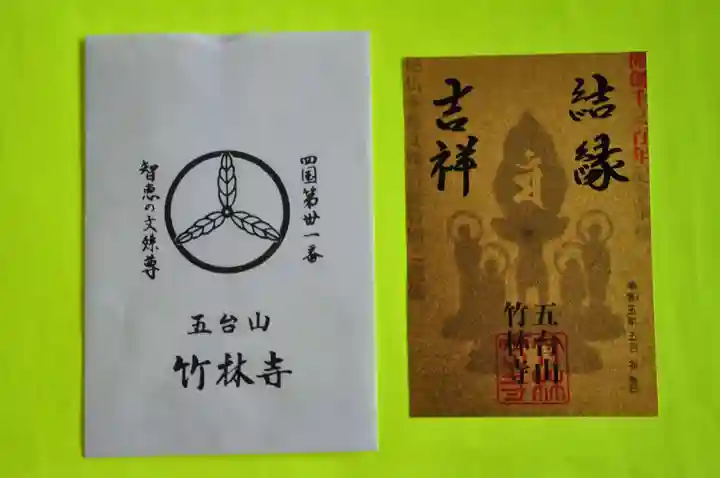 四国第卅一番
智恵の文殊尊
五台山
竹林寺
結縁
吉祥
開創千三百年
五台山
竹林寺